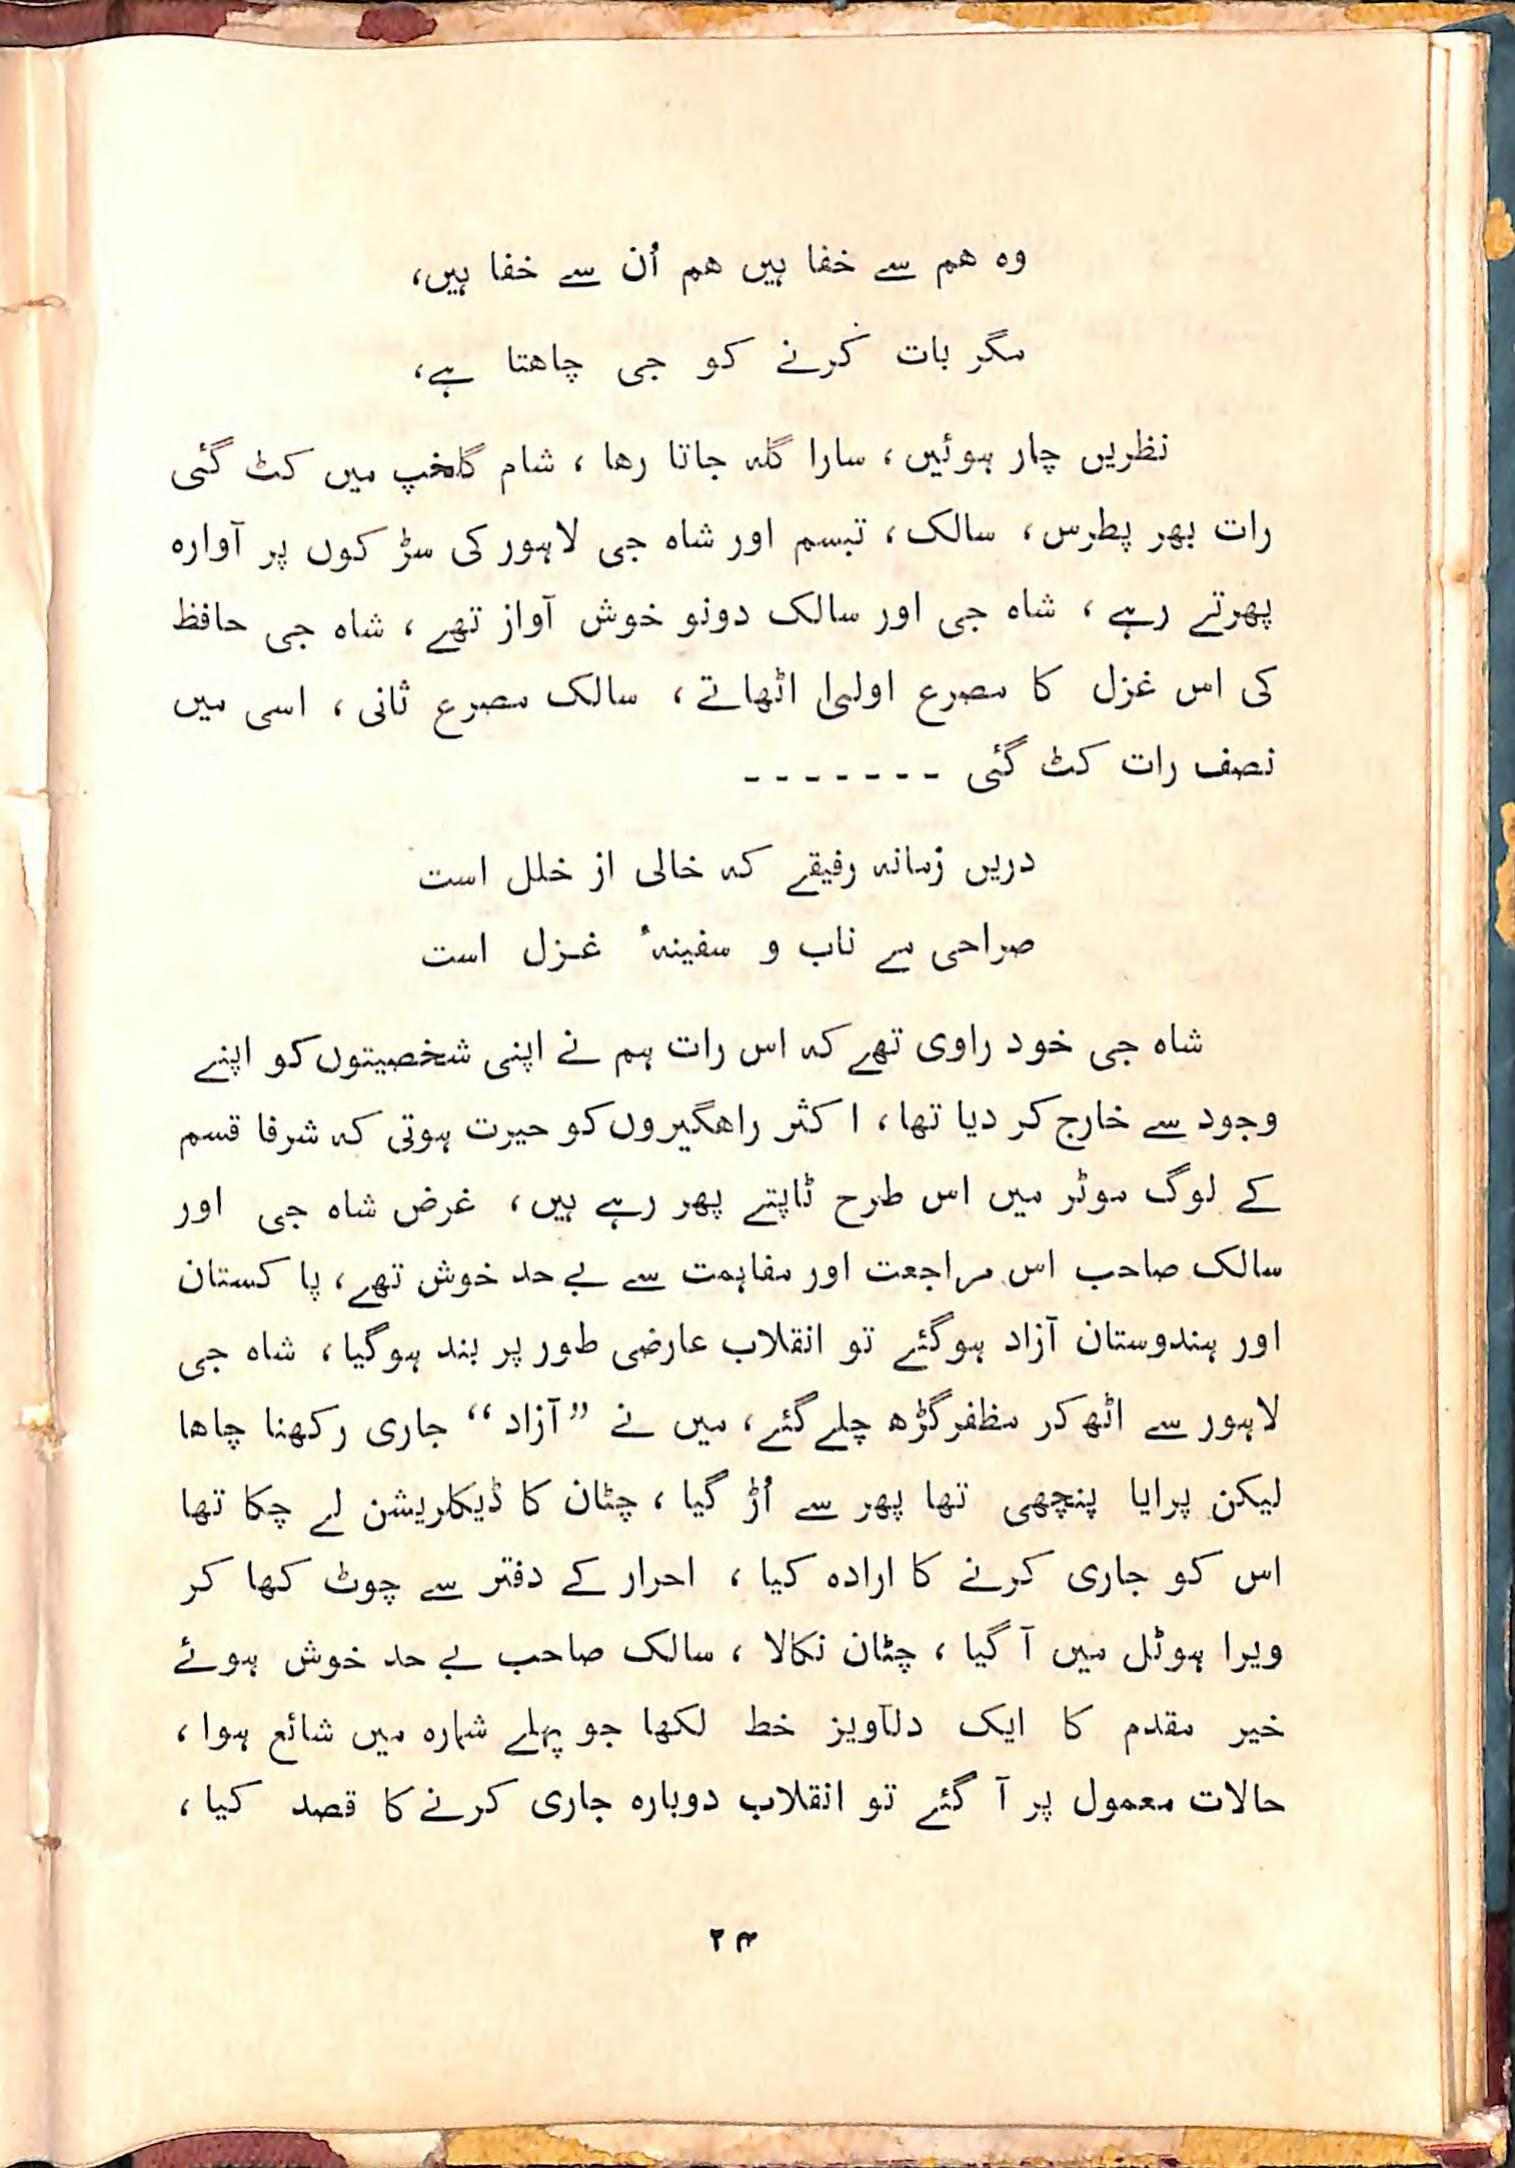 وہ ھم سے خفا ہیں ھم اُن سے خفا ہیں،
مگر بات کرنے کو جی چاھتا ہے،
نظریں چار ہوئیں، سارا گلہ جاتا رھا، شام گلخپ میں کٹ گئی
رات بھر پطرس، سالک، تبسم اور شاہ جی لاہور کی سڑکوں پر آوارہ
پھرتے رہے، شاہ جی اور سالک دونو خوش آواز تھے، شاہ جی حافظ
کی اس غزل کا مصرع اولیٰ اٹھاتے، سالک مصرع ثانی، اسی میں
نصف رات کٹ گئی - - - - - - -
دریں زمانہ رفیقے کہ خالی از خلل است
صراحی مے ناب و سفینہٴ غزل است
شاہ جی خود راوی تھے کہ اس رات ہم نے اپنی شخصیتوں کو اپنے
وجود سے خارج کر دیا تھا، اکثر راھگیروں کو حیرت ہوتی کہ شرفا قسم
کے لوگ موٹر میں اس طرح ٹاپتے پھر رہے ہیں، غرض شاہ جی اور
سالک صاحب اس مراجعت اور مفاہمت سے بے حد خوش تھے، پاکستان
اور ہندوستان آزاد ہوگئے تو انقلاب عارضی طور پر بند ہوگیا، شاہ جی
لاہور سے اٹھ کر مظفرگڑھ چلے گئے، میں نے ”آزاد“ جاری رکھنا چاھا
لیکن پرایا پنچھی تھا پھر سے اُڑ گیا، چٹان کا ڈیکلریشن لے چکا تھا
اس کو جاری کرنے کا ارادہ کیا، احرار کے دفتر سے چوٹ کھا کر
ویرا ہوٹل میں آ گیا، چٹان نکالا، سالک صاحب بے حد خوش ہوئے
خیر مقدم کا ایک دلآویز خط لکھا جو پہلے شمارہ میں شائع ہوا،
حالات معمول پر آ گئے تو انقلاب دوبارہ جاری کرنے کا قصد کیا،
۲۴